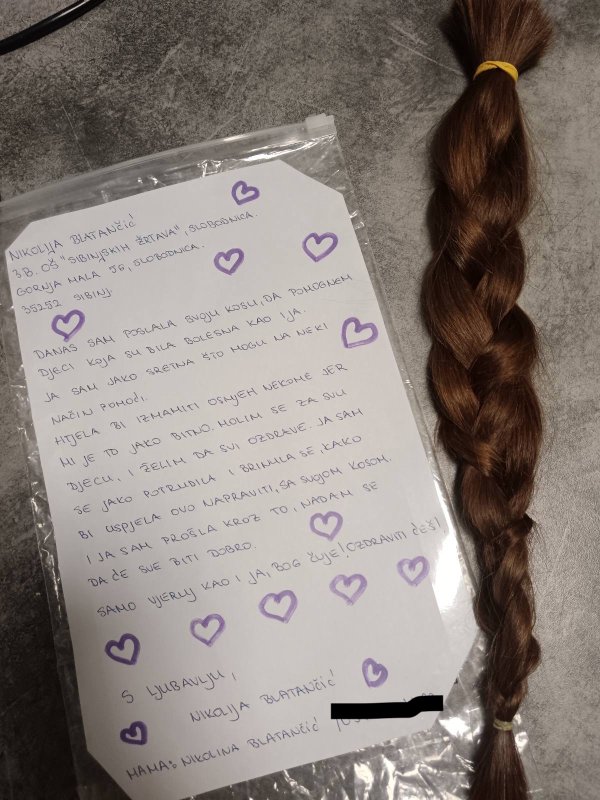 NIKOLIJA BLATANČIĆ
3B. OŠ "SIBINJSKIH ŽRTAVA" SLOBODNICA.
GORNJA MALA JG, SLOBODNICA.
35252 SIBINJ
DANAS SAM POSLALA SVOJU KOSU, DA POMOGNEM
DJECI KOJA SU BILA BOLESNA KAO I JA.
JA SAM JAKO SRETNA ŠTO MOGU NA NEKI
NAČIN POMOĆI.
HTJELA BI IZMAMITI OSMJEH NEKOME JER
MI JE TO JAKO BITNO. MOLIM SE ZA SVU
DJECU, I ŽELIM DA SVI OZDRAVE. JA SAM
SE JAKO POTRUDILA I BRINULA SE, KAKO
BI USPJELA OVO NAPRAVITI, SA SVOJOM KOSOM.
I JA SAM PROŠLA KROZ TO, NADAM SE
DA ĆE SVE BITI DOBRO.
SAMO VJERUJ KAO I JA, BOG ČUJE! OZDRAVITI ĆEŠ!
S LJUBAVLJU,
NIKOLIJA BLATANČIĆ
MAMA: NIKOLINA BLATANČIĆ